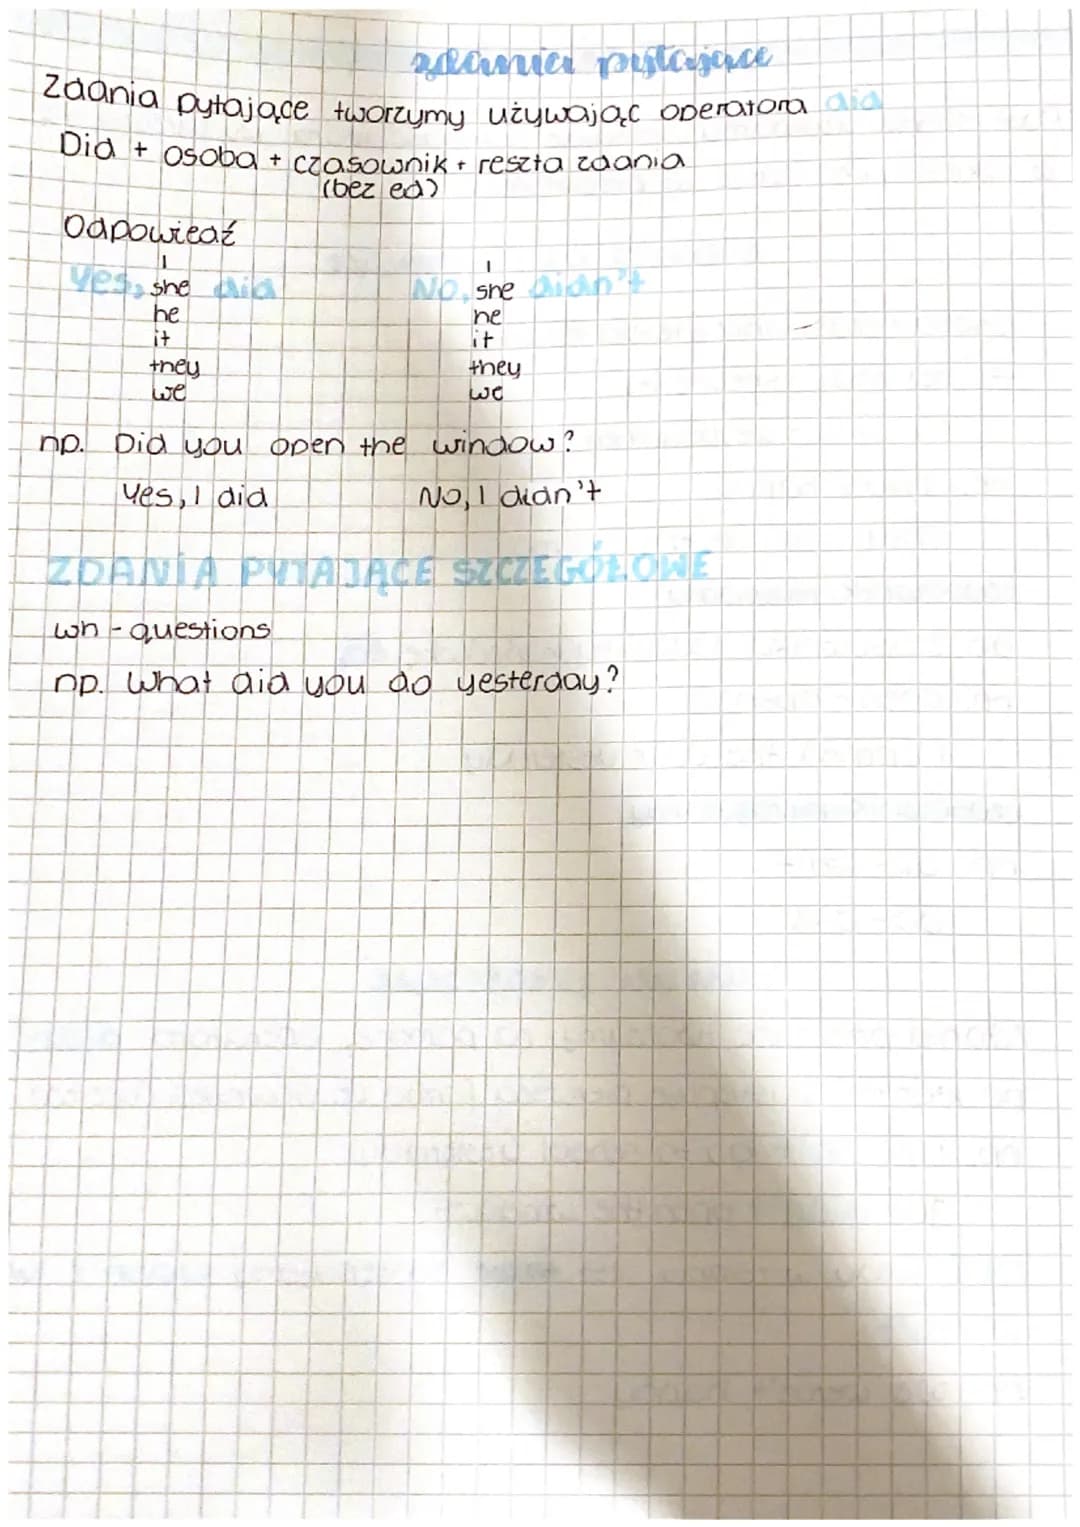 zdania pytające
Zdania pytające tworzymy używając operatora did
Did + osoba + czasownik + reszta zdania
(bez ed)
Odpowiedź
I I
Yes, she did No, she didn't
he he
it it
they they
we we
np. Did you open the window?
Yes, I did No, I didn't
ZDANIA PYTAJĄCE SZCZEGÓŁOWE
wh - questions
np. What did you do yesterday?